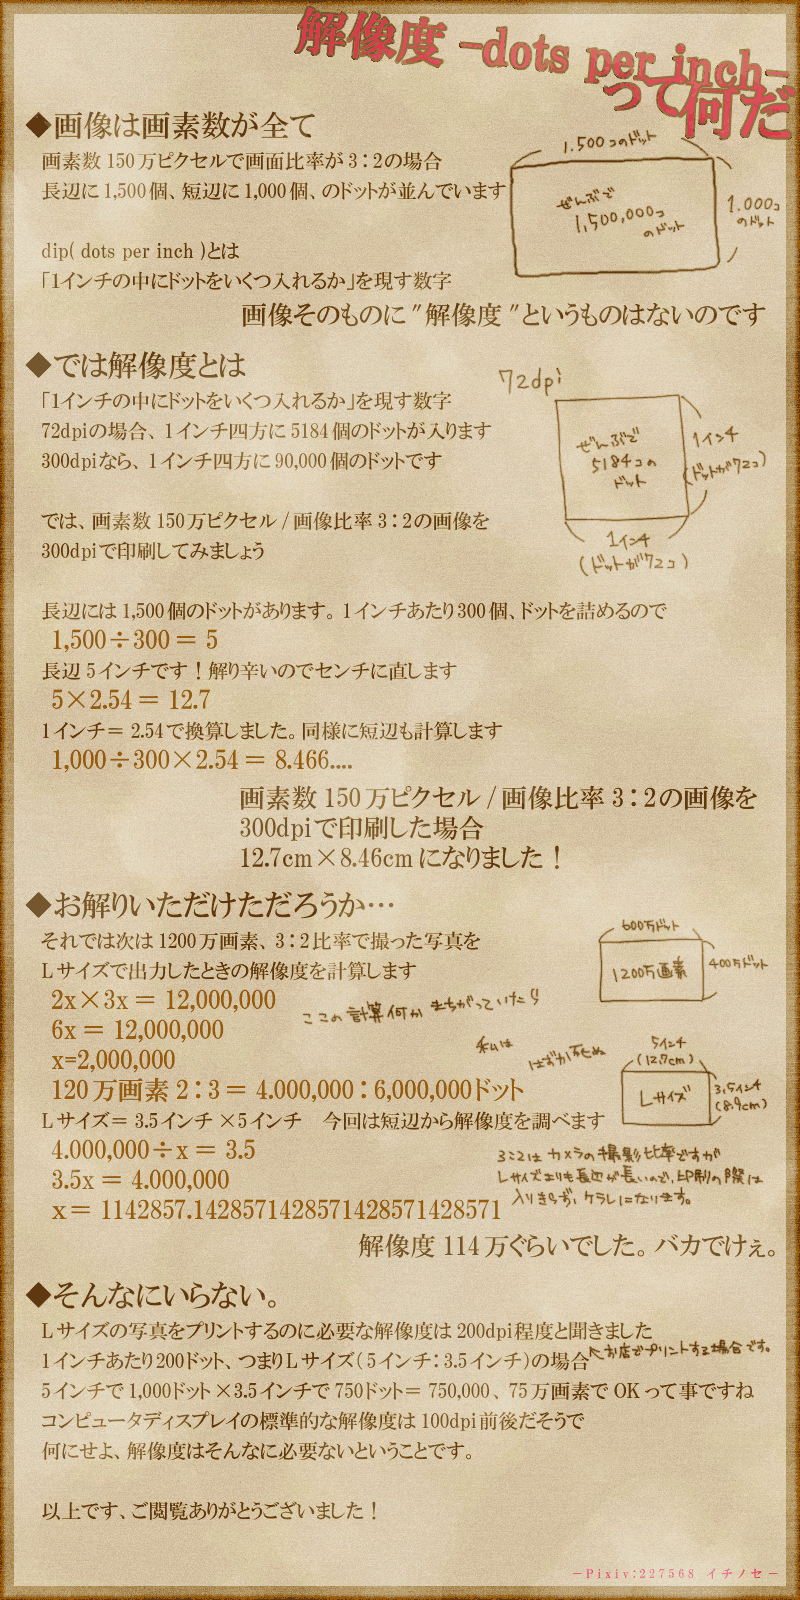 解像度 -dots per inch-
って何だ
◆画像は画素数が全て
画素数 150 万ピクセルで画面比率が 3：2の場合
長辺に 1,500 個、短辺に 1,000 個、のドットが並んでいます
1.500コのドット
ぜんぶで
1,500,000コ
のドット
1.000コ
のドット
dip( dots per inch )とは
「1インチの中にドットをいくつ入れるか」を現す数字
画像そのものに ″解像度 ″というものはないのです
◆では解像度とは
「1インチの中にドットをいくつ入れるか」を現す数字
72dpiの場合、1インチ四方に 5184 個のドットが入ります
300dpiなら、1インチ四方に 90,000 個のドットです
72dpi
ぜんぶで
5184コの
ドット
1インチ
(ドットが72コ)
1インチ
(ドットが72コ)
では、画素数 150万ピクセル / 画像比率 3：2の画像を
300dpiで印刷してみましょう
長辺には 1,500 個のドットがあります。1インチあたり300 個、ドットを詰めるので
1,500÷300＝ 5
長辺 5インチです！解り辛いのでセンチに直します
5×2.54＝ 12.7
1インチ＝ 2.54で換算しました。同様に短辺も計算します
1,000÷300×2.54＝ 8.466....
画素数 150 万ピクセル / 画像比率 3：2の画像を
300dpiで印刷した場合
12.7cm×8.46cm になりました！
◆お解りいただけただろうか…
それでは次は 1200 万画素、3：2 比率で撮った写真を
Lサイズで出力したときの解像度を計算します
2x×3x＝ 12,000,000
6x＝ 12,000,000
x=2,000,000
120 万画素 2：3＝ 4.000,000：6,000,000ドット
600万ドット
1200万画素
400万ドット
ここの計算何かまちがっていたら
私は
はずか死ぬ
5インチ
(12.7cm)
Lサイズ
3.5インチ
(8.9cm)
Lサイズ＝ 3.5インチ ×5インチ　今回は短辺から解像度を調べます
4.000,000÷x＝ 3.5
3.5x＝ 4.000,000
x＝ 1142857.1428571428571428571428571
3:2はカメラの撮影比率ですが
Lサイズよりも長辺が長いので、印刷の際は
入りきらず、ケラレになります。
解像度 114 万ぐらいでした。バカでけぇ。
◆そんなにいらない。
Lサイズの写真をプリントするのに必要な解像度は 200dpi程度と聞きました
1インチあたり200ドット、つまりLサイズ（5インチ：3.5インチ）の場合
↖お店でプリントする場合です。
5インチで 1,000ドット ×3.5インチで 750ドット＝ 750,000、75万画素で OKって事ですね
コンピュータディスプレイの標準的な解像度は 100dpi前後だそうで
何にせよ、解像度はそんなに必要ないということです。
以上です、ご閲覧ありがとうございました！
－Pixiv:227568 イチノセ－